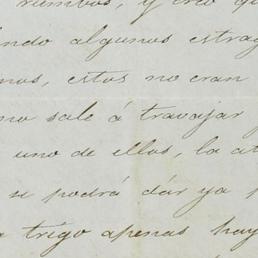 rumbos, y creo q
ndo algunos estrag
nos, estos no eran
no sale á travajar
uno de ellos, la at
se podrá dár ya p
trigo apenas hay